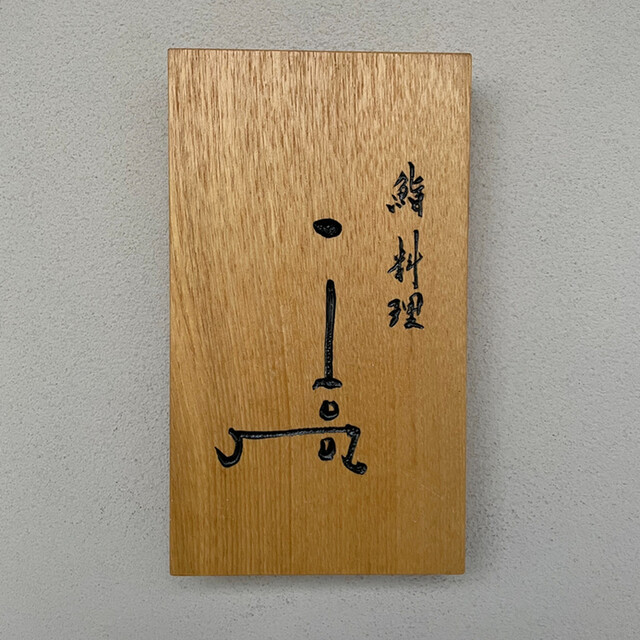 鮨料理
一高